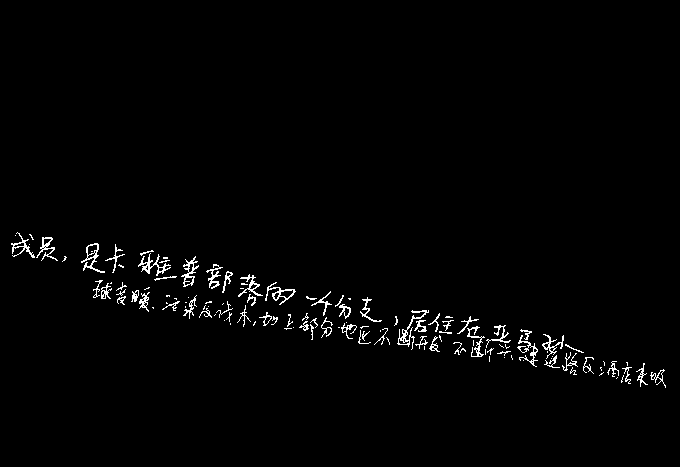 成员，是卡雅普部落的一个分支，居住在亚马孙
球变暖、污染及伐木，加上部分地区不断开发不断兴建道路及酒店来吸